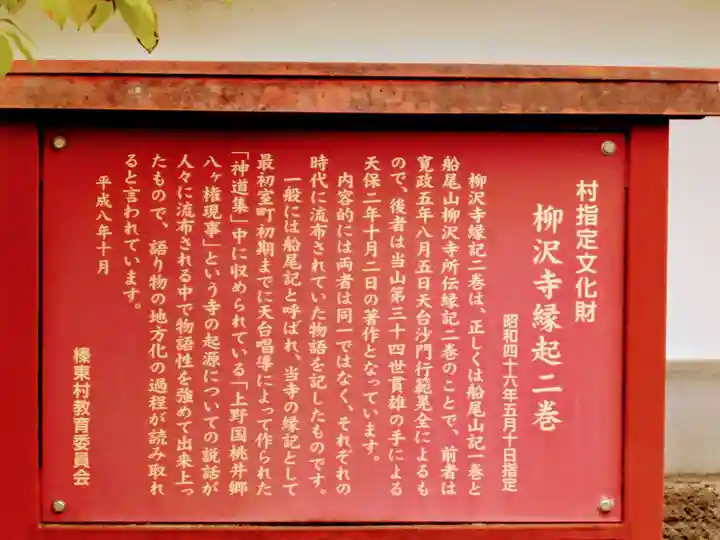 村指定文化財
柳沢寺縁起二巻
昭和四十六年五月十日指定
柳沢寺縁記二巻は、正しくは船尾山記一巻と
船尾山柳沢寺所伝縁記二巻のことで、前者は
寛政五年八月五日天台沙門行範晃全によるも
ので、後者は当山第三十四世貫雄の手による
天保二年十月二日の著作となっています。
内容的には両者は同一ではなく、それぞれの
時代に流布されていた物語を記したものです。
一般には船尾記と呼ばれ、当寺の縁記として
最初室町初期までに天台唱導によって作られた
「神道集」中に収められている「上野国桃井郷
八ヶ権現事」という寺の起源についての説話が
人々に流布される中で物語性を強めて出来上っ
たもので、語り物の地方化の過程が読み取れ
ると言われています。
平成八年十月
榛東村教育委員会